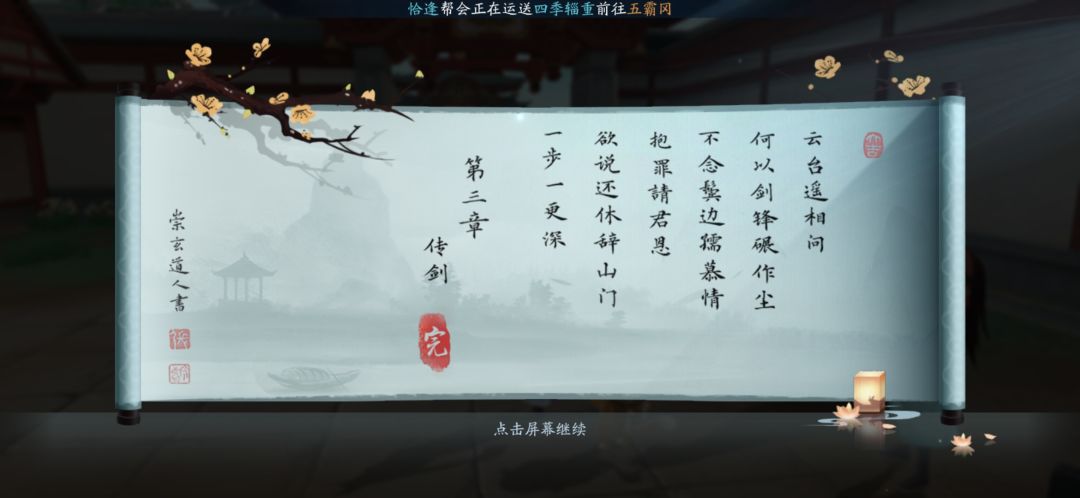 恰逢帮会正在运送四季辎重前往五霸冈
云台遥相问
何以剑锋碾作尘
不念鬓边孺慕情
抱罪請君恩
欲说还休辞山门
一步一更深
第三章
传剑
完
崇玄道人書
点击屏幕继续